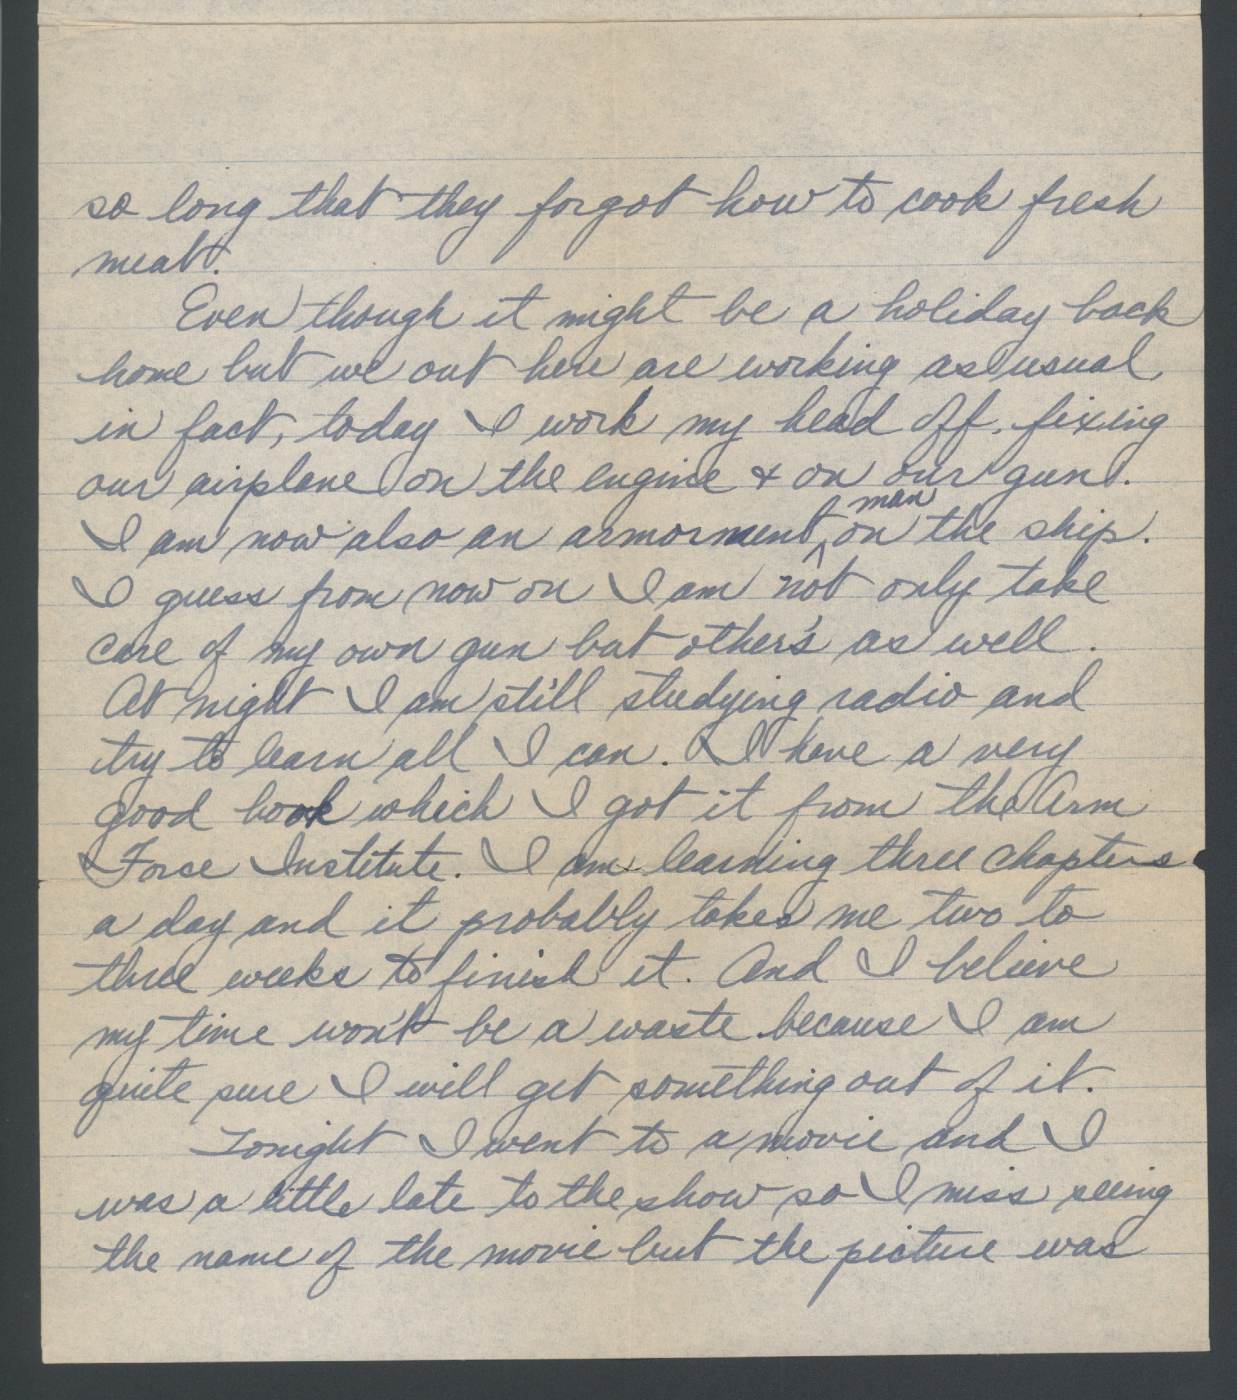 so long that they forgot how to cook fresh
meat.
Even though it might be a holiday back
home but we out here are working as usual,
in fact, today I work my head off, fixing
our airplane on the engine & on our gun.
I am now also an armorment man on the ship.
I guess from now on I am not only take
care of my own gun but other's as well.
At night I am still studying radio and
try to learn all I can. I have a very
good book which I got it from the Arm
Forse Institute. I am learning three chapters
a day and it probably takes me two to
three weeks to finish it. And I believe
my time won't be a waste because I am
quite sure I will get something out of it.
Tonight I went to a movie and I
was a little late to the show so I miss seeing
the name of the movie but the picture was